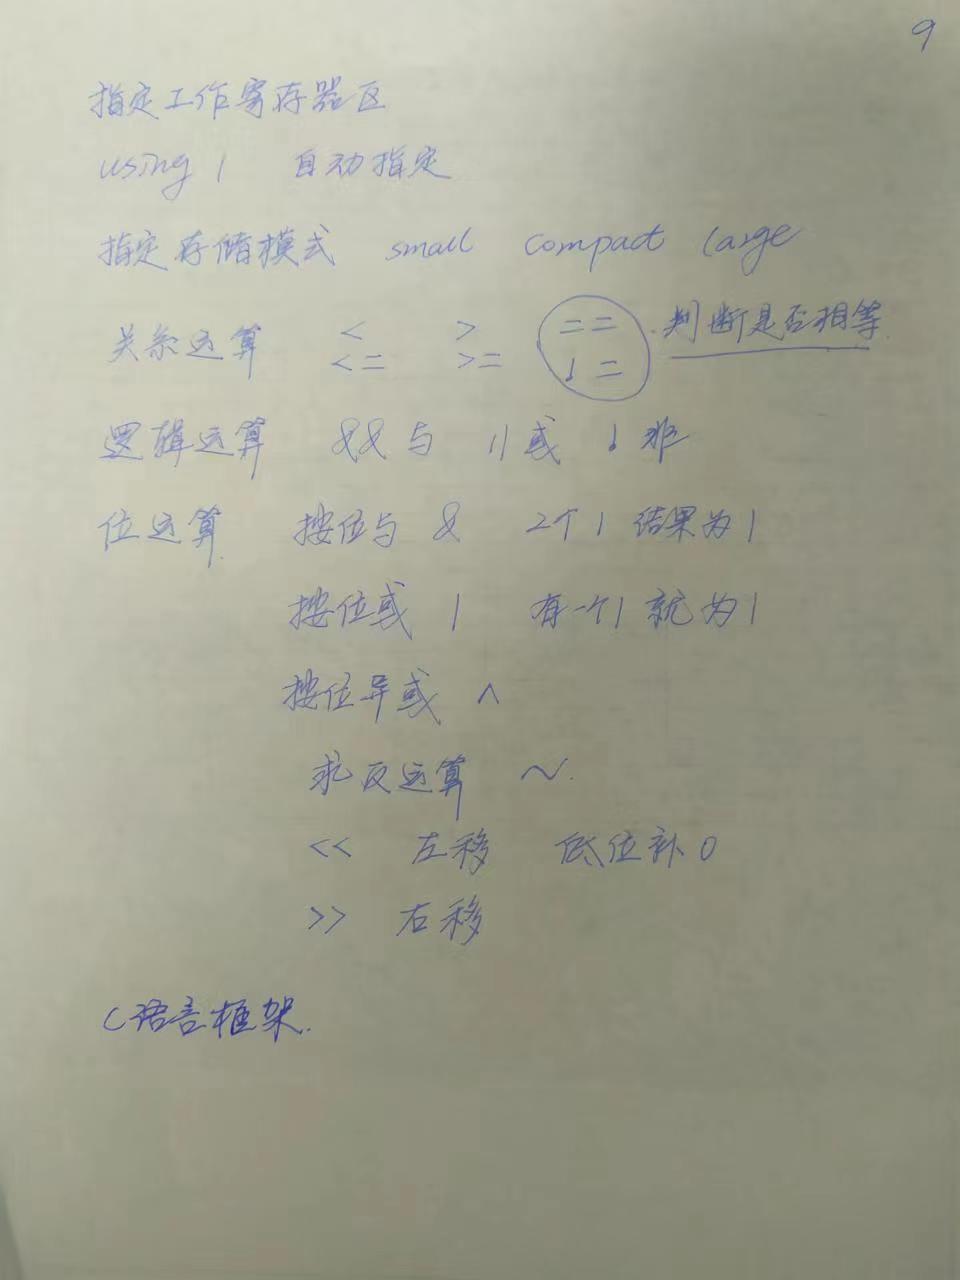 9
指定工作寄存器区
using 1 自动指定
指定存储模式 small compact large
关系运算 < > == 判断是否相等
<= >= !=
逻辑运算 && 与 || 或 ! 非
位运算 按位与 & 2个1 结果为1
按位或 | 有一个1 就为1
按位异或 ^
求反运算 ~.
<< 左移 低位补0
>> 右移
C语言框架.